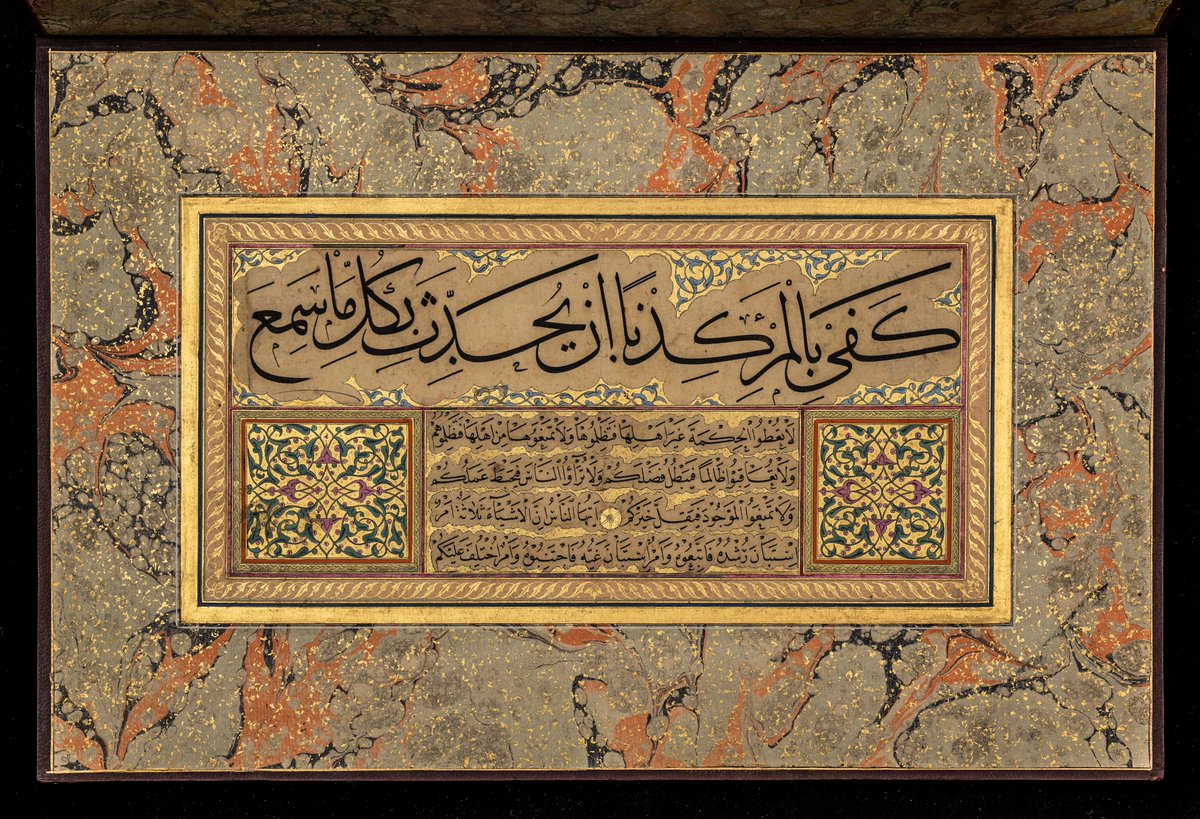 كَفَى بِالْمَرْءِ كَذِبًا اَنْ يُحَدِّثَ بِكُلِّ مَا سَمِعَ
لا تعطوا الحكمة غير اهلها فتظلموها ولا تمنعوها من اهلها فتظلموهم
ولا تعاقبوا ظالما فيبطل فضلكم ولا تراؤا الناس فيحبط عملكم
ولا تمنعوا الموجود فيقل خيركم ايها الناس ان الاشياء ثلاثة امر
استبان رشده فاتبعوه وامر استبان غيه فاجتنبوه وامر اختلف عليكم